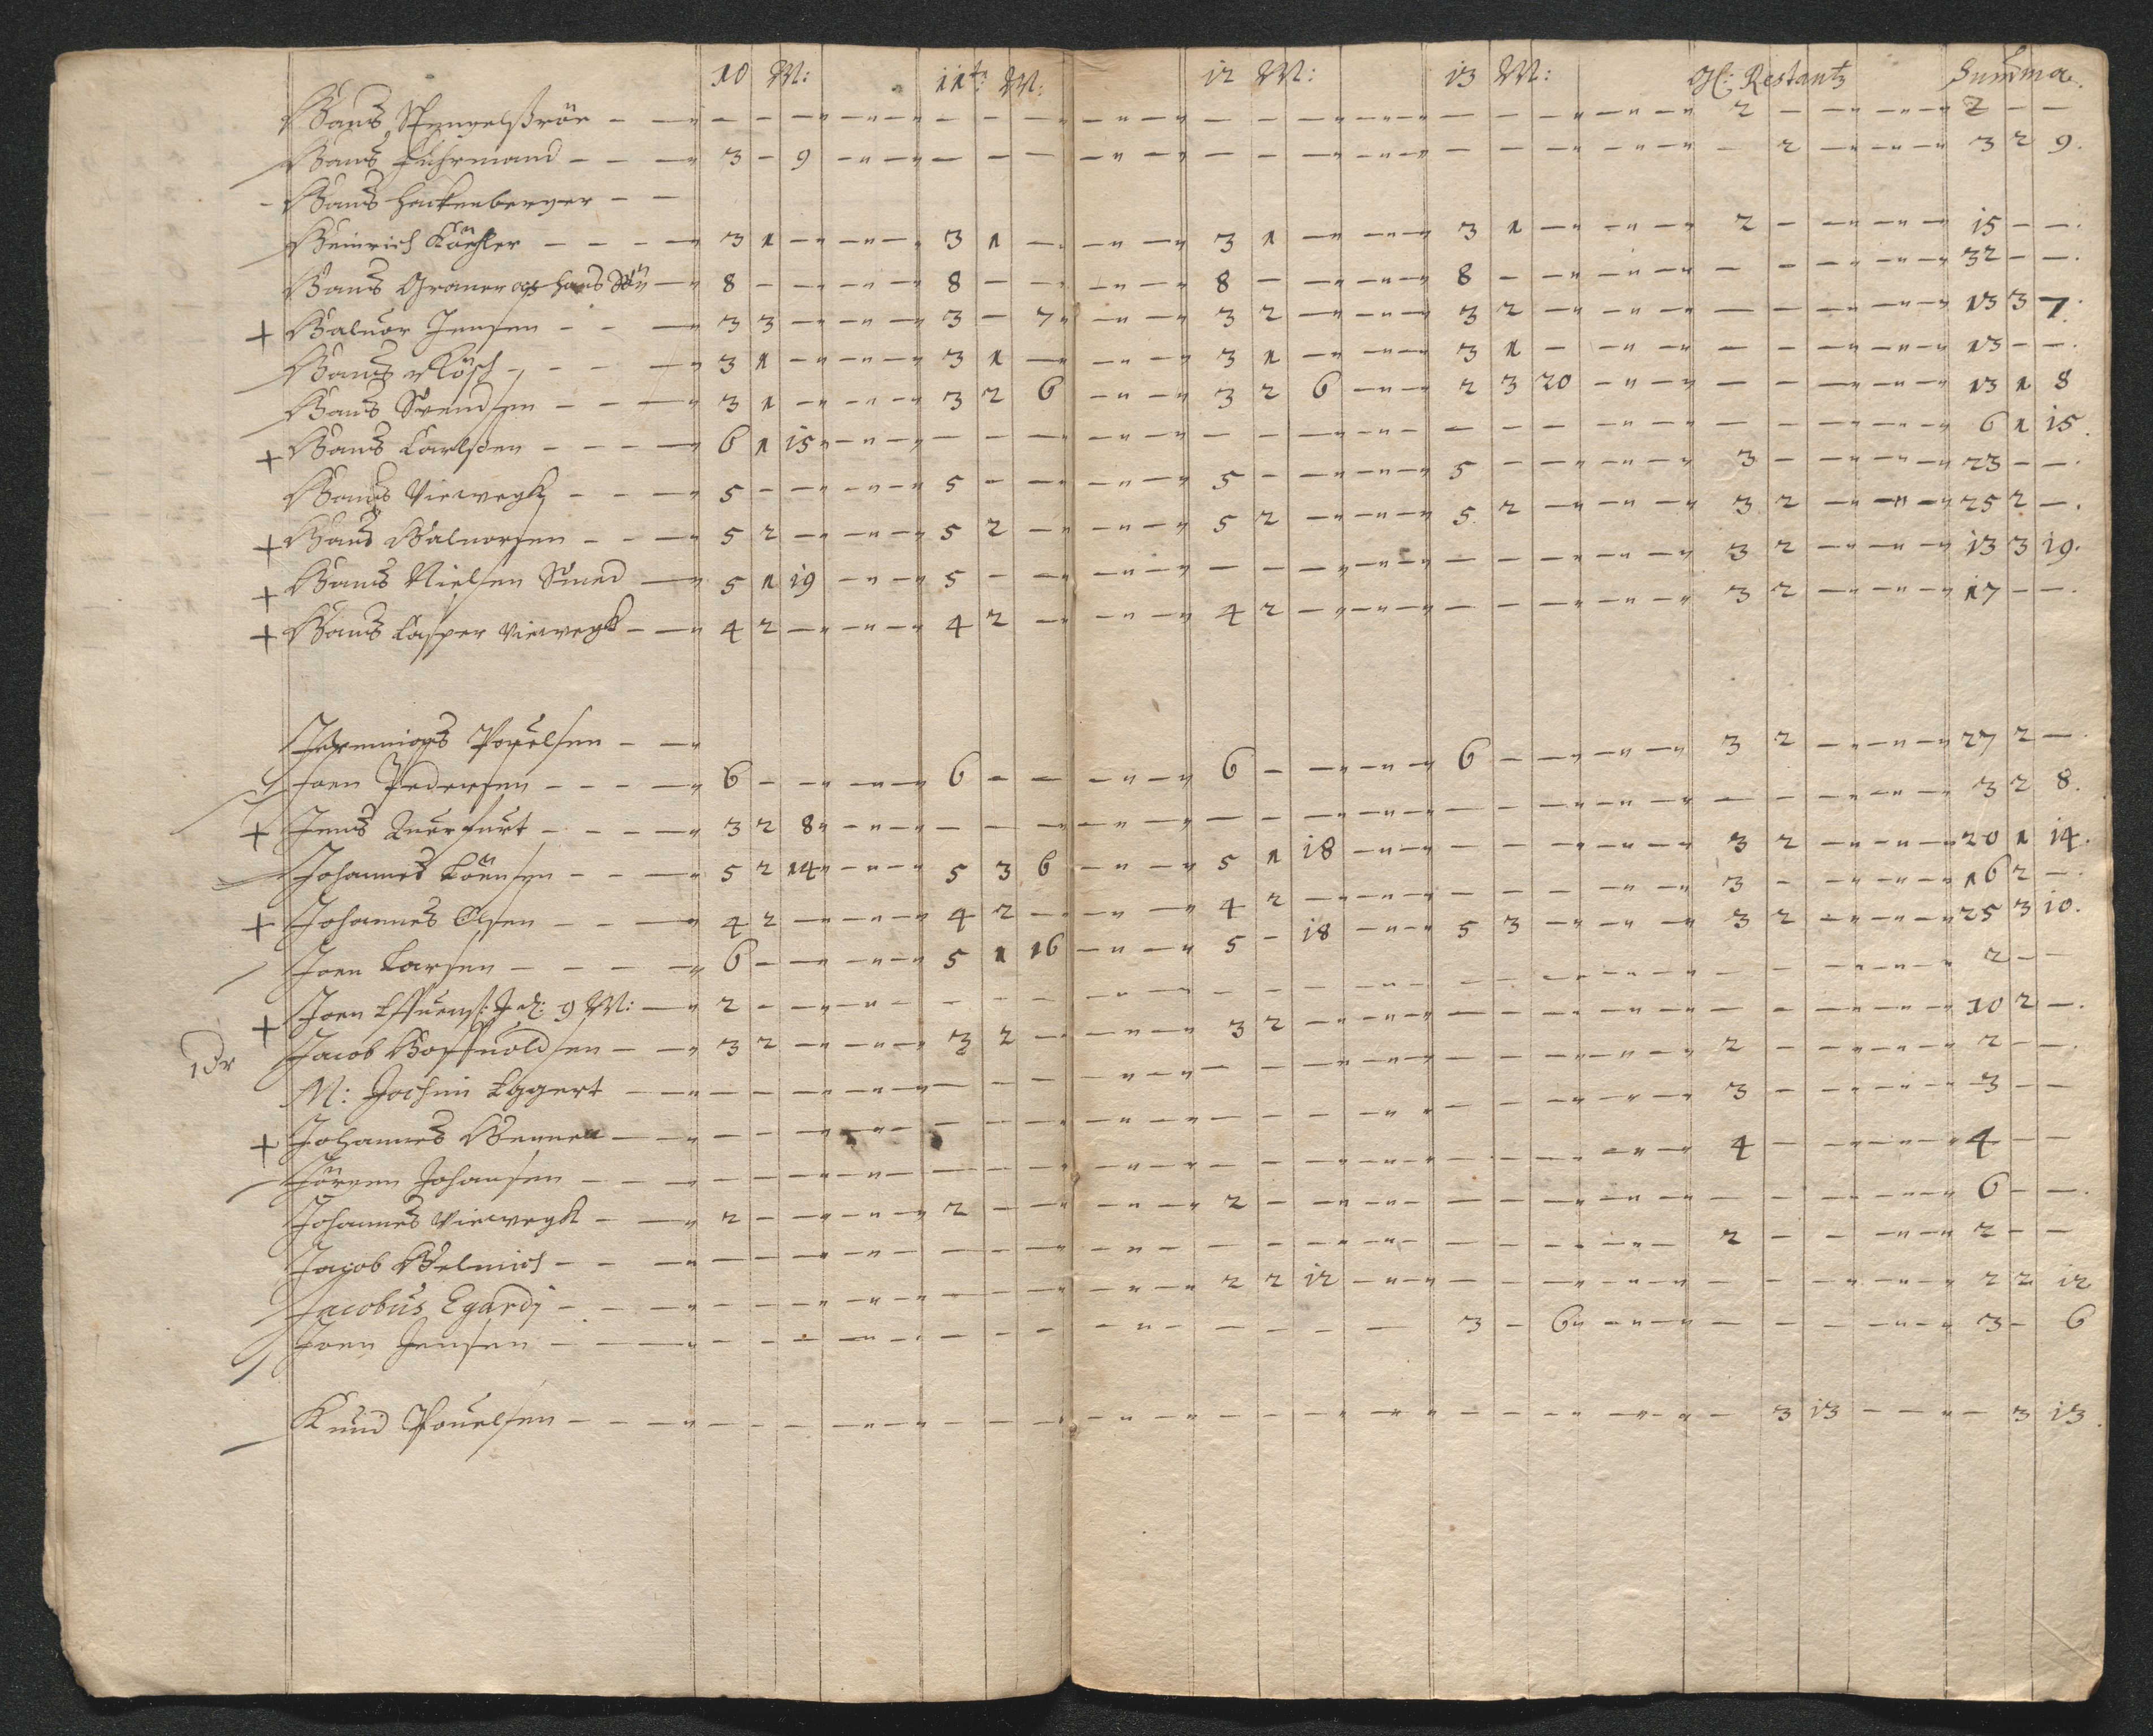 10 M: 11te M: 12 M: 13 M: Gl: Restantz Summa.
Hans Stengelßröe - - - 2 - - 2 - -
Hans Fuhrmand - - - 3 - 9 - - 2 - 3 2 9.
Hans Hackenberger - -
Heinrich Köehler - - - 3 1 - 3 1 - 3 1 - 3 1 - 2 - - 15 - -
Hans Graner och hans Sön - 8 - - 8 - - 8 - - 8 - - - - - 32 - -
+ Haluor Jensen - - - 3 3 - 3 - 7 3 2 - 3 2 - - - - 13 3 7.
Hans - - - 3 1 - 3 1 - 3 1 - 3 1 - - - - 13 - -
Hans Svendsen - - - 3 1 - 3 2 6 3 2 6 2 3 20 - - - 13 1 8
+ Hans Carlsen - - - 6 1 15 - - - - - - - - - - - - 6 1 15.
Hans Viewegk - - - 5 - - 5 - - 5 - - 5 - - 3 - - 23 - -
+ Hans Haluorsen - - - 5 2 - 5 2 - 5 2 - 5 2 - 3 2 - 25 2 -
+ Hans Nielsen Smed - 5 1 19 5 - - - - - - - - 3 2 - 13 3 19.
+ Hans Casper Viewegk - 4 2 - 4 2 - 4 2 - - - - 3 2 - 17 - -
Jeremias Pouelsen - -
Joen Pedersen - - - 6 - - 6 - - 6 - - 6 - - 3 2 - 27 2 -
+ Jens Querfurt - - - 3 2 8 - - - - - - - - - - - - 3 2 8.
Johannes Löensen - - - 5 2 14 5 3 6 5 1 18 - - - 3 2 - 20 1 14.
+ Johannes Olsen - - - 4 2 - 4 2 - 4 2 - - - - 3 - - 16 2 -
Joen Larsen - - - 6 - - 5 1 16 5 - 18 5 3 - 3 2 - 25 3 10.
+ Joen 9 M: - 2 - - - - - - - - - - - - - - 2 - -
Jacob - 3 2 - 3 2 - 3 2 - - - - - - - 10 2 -
M: Jochim Eggert - - - - - - - - - - - - - 2 - - 2 - -
+ Johannes - - - - - - - - - - - - - 3 - - 3 - -
Jörgen Johansen - - - - - - - - - - - - - 4 - - 4 - -
Johannes Viewegk - 2 - - 2 - - 2 - - - - - - - - 6 - -
Jacob Helmich - - - - - - - - - - - - - 2 - - 2 - -
Jacobus Egardi - - - - - - - - 2 2 12 - - - - - - 2 2 12
Joen Jensen - - - - - - - - - - - 3 - 6 - - - 3 - 6
Knud Pouelsen - - - - - - - - - - - - - - 3 13 - 3 13.